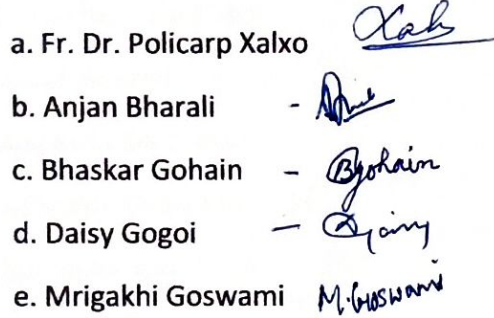 a. Fr. Dr. Policarp Xalxo
b. Anjan Bharali -
c. Bhaskar Gohain - Bgohain
d. Daisy Gogoi -
e. Mrigakhi Goswami M.Goswami